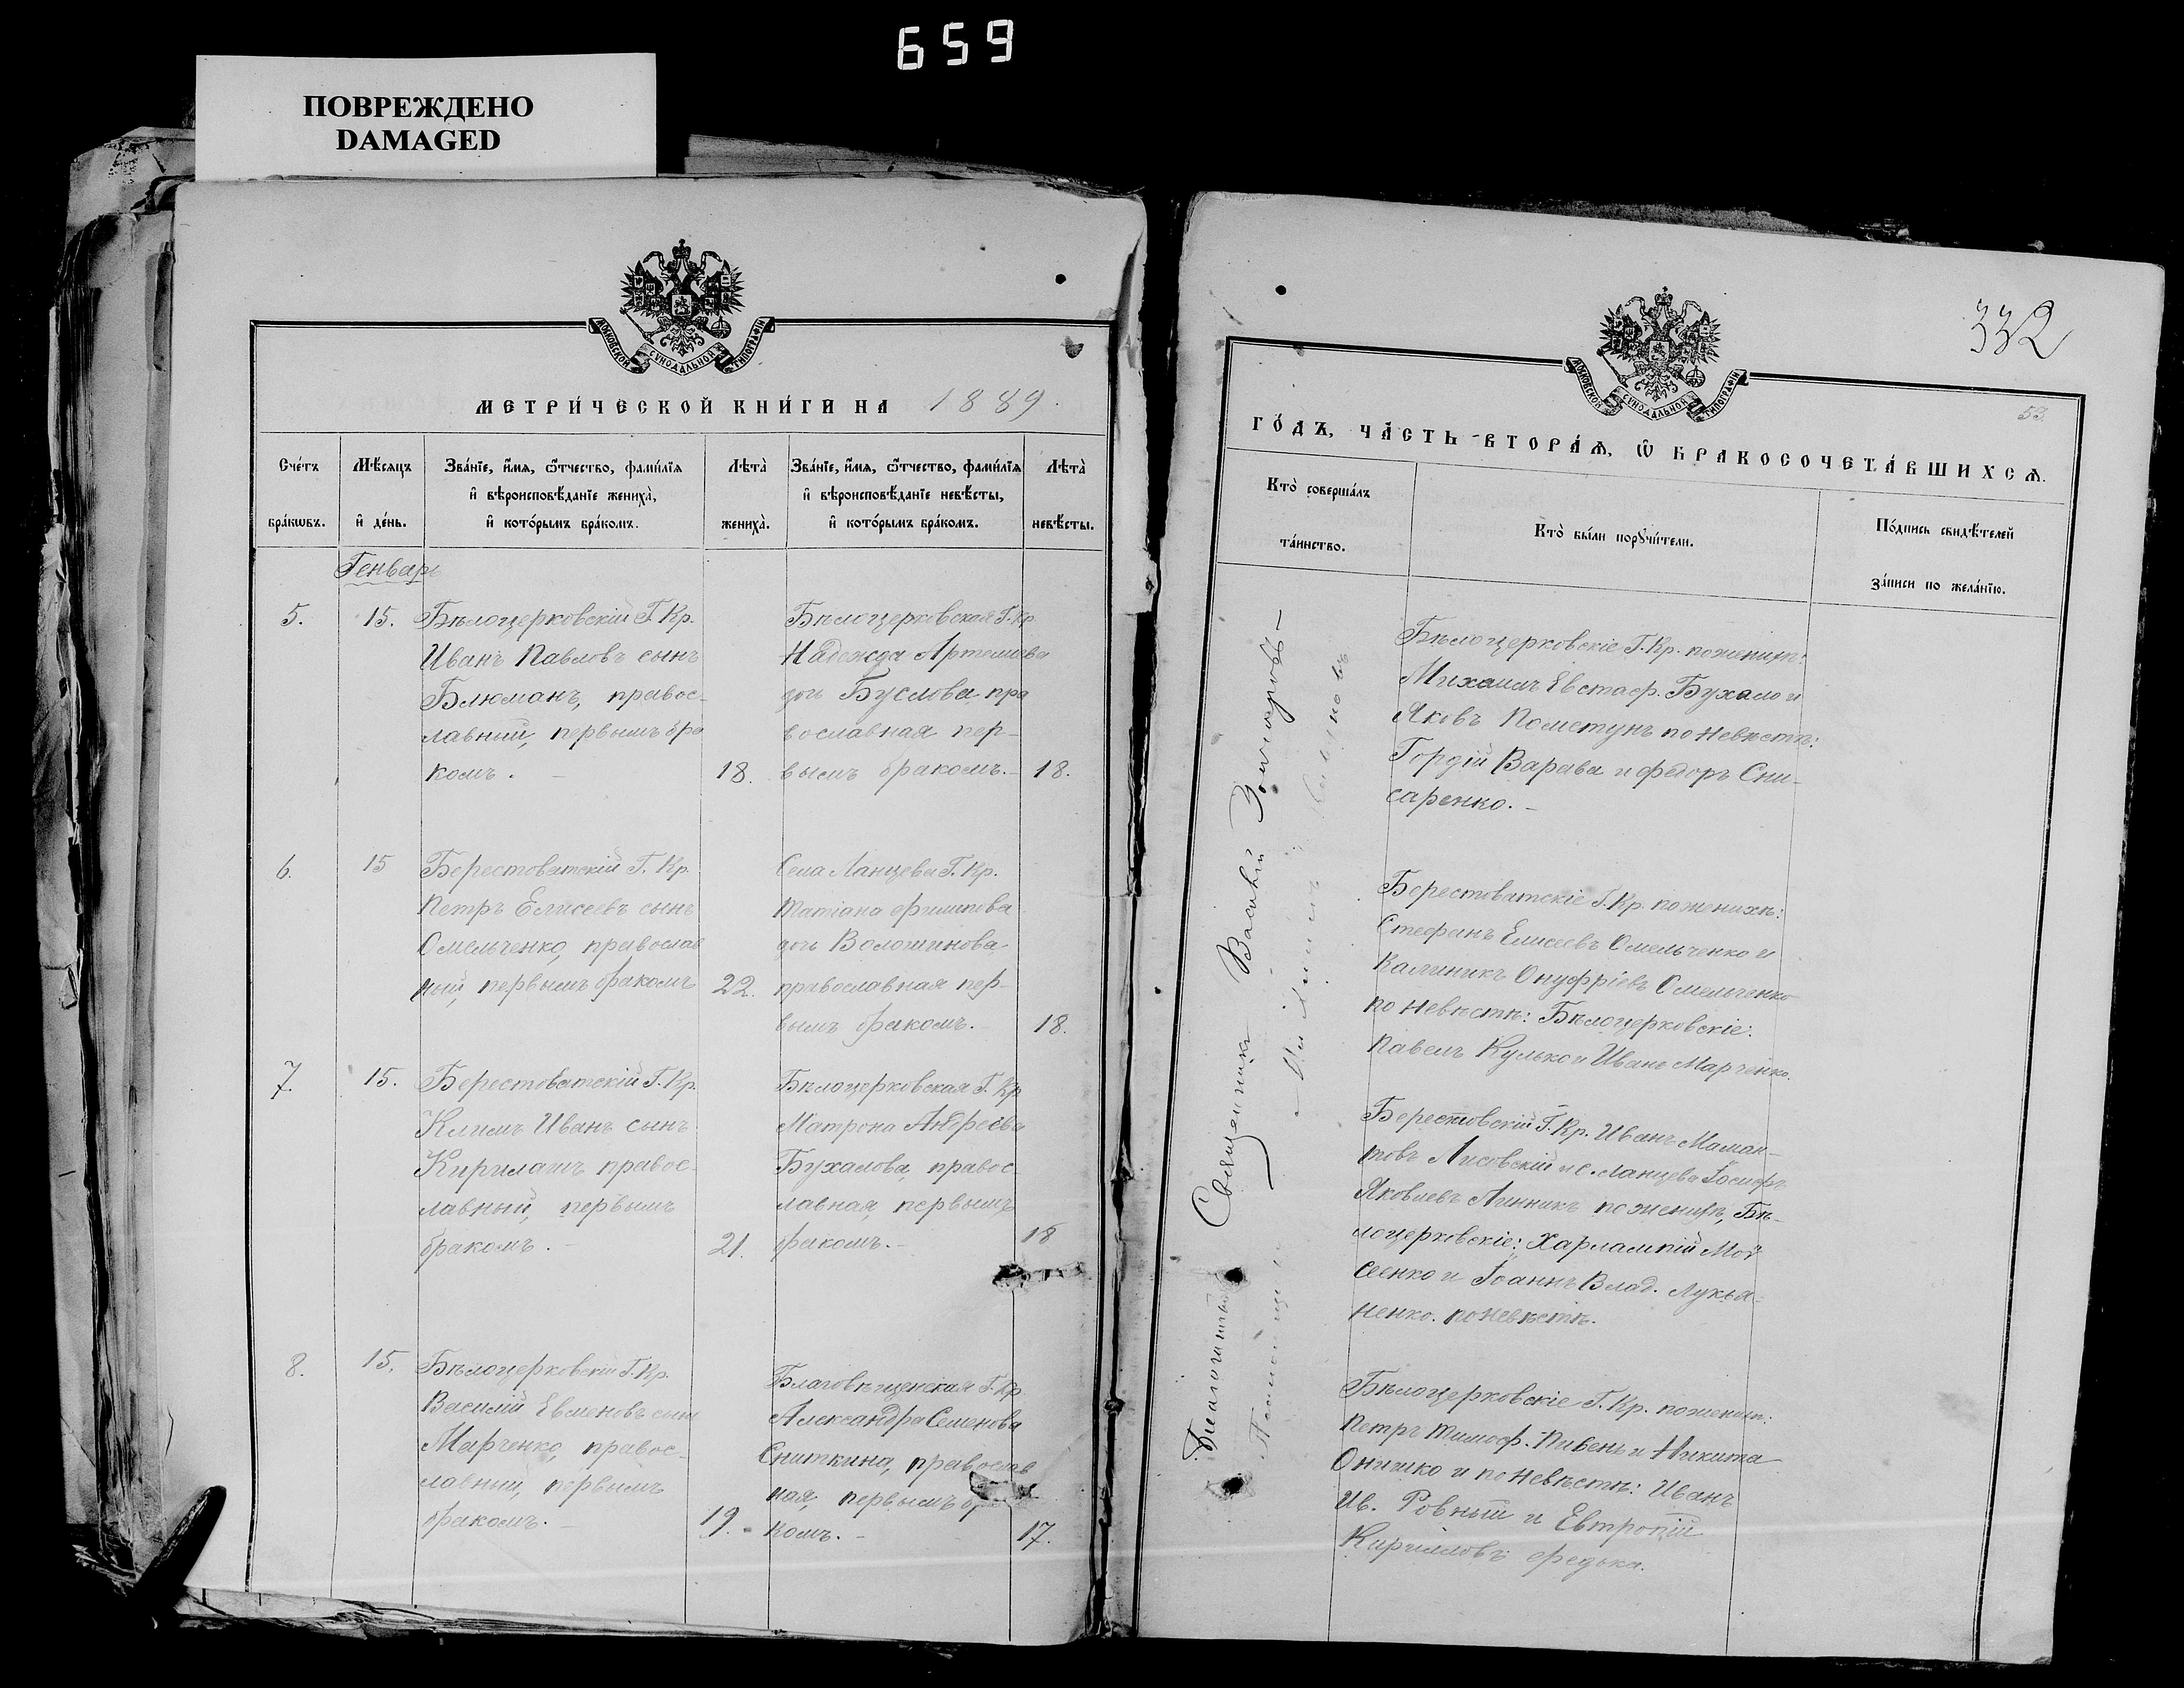 659
ПОВРЕЖДЕНО
DAMAGED
МОСКОВСКОЙ СУНОДАЛЬНОЙ ТИПОГРАФІИ
МЕТРИ́ЧЕСКОЙ КНИ́ГИ НА 1889.
Сче́тъ бра́кѡвъ.
Мѣ́сяцъ и҆ де́нь.
Зва́нїе, и҆́мѧ, ѻ҆́тчество, фами́лїѧ
и҆ вѣроисповѣ́данїе жениха̀,
и҆ кото́рымъ бра́комъ.
Лѣта̀ жениха̀.
Зва́нїе, и҆́мѧ, ѻ҆́тчество, фами́лїѧ
и҆ вѣроисповѣ́данїе невѣ́сты,
и҆ кото́рымъ бра́комъ.
Лѣта̀ невѣ́сты.
Генварь
5.
15.
Бѣлоцерковскій Г. Кр.
Иванъ Павловъ сынъ
Блюманъ, правос-
лавный, первымъ бра
комъ. –
18.
Бѣлоцерковская Г. Кр.
Надежда Артемиева
дочь Буслова пра
вославная пер-
вымъ бракомъ. –
18.
6.
15
Берестоватскій Г. Кр.
Петръ Елисеевъ сынъ
Омельченко, православ
ный, первымъ бракомъ
22.
Села Ланцева Г. Кр.
Татіана Филипова
дочь Волошинова
православная пер-
вымъ бракомъ. –
18.
7.
15.
Берестоватскій Г. Кр.
Климъ Иванъ сынъ
правос-
лавный, первымъ
бракомъ. –
21.
Бѣлоцерковская Г. Кр
Матрона Андреева
Бухалова, правос
лавная, первымъ
бракомъ. –
18
8.
15.
Бѣлоцерковскій Г. Кр.
Василій Евменовъ сынъ
Марченко, правос-
лавный, первымъ
бракомъ. –
19.
Благовѣщенская Г. Кр.
Александра Семенова
Сниткина, православ
ная, первымъ бра
комъ. –
17.
332
53.
МОСКОВСКОЙ СУНОДАЛЬНОЙ ТИПОГРАФІИ
ГО́ДЪ, ЧА́СТЬ ВТОРА́Ѧ, Ѡ҆ БРАКОСОЧЕТА́ВШИХСѦ.
Кто̀ соверша́лъ та́инство.
Кто̀ бы́ли порꙋчи́тели.
По́дпись свидѣ́телей
за́писи по жела́нїю.
Священникъ Василій
Бѣлоцерковскіе Г. Кр. по женихѣ:
Михаилъ Евстаф. Бухало и
Яковъ Пометунъ по невѣстѣ:
Гордій Варава и Федоръ Сни-
саренко. –
Берестоватскіе Г. Кр. по женихѣ:
Стефанъ Елисеевъ Омельченко и
Калиникъ Онуфріевъ Омельченко
по невѣстѣ: Бѣлоцерковскіе:
Павелъ Кулько и Иванъ Марченко.
Берестовскій Г. Кр. Иванъ Маман-
товъ Лисовскій и с. Ланцева Іосифъ
Яковлевъ Линникъ по женихѣ, Бѣ-
лоцерковскіе: Харлампій Мой
сеенко и Іоаннъ Влад. Лукья-
ненко. по невѣстѣ.
Бѣлоцерковскіе Г. Кр. по женихѣ:
Петръ Тимоф. Пивень и Никита
Онишко и по невѣстѣ: Иванъ
Ив. Ровный и Евтропій
Кирилловъ Федька.